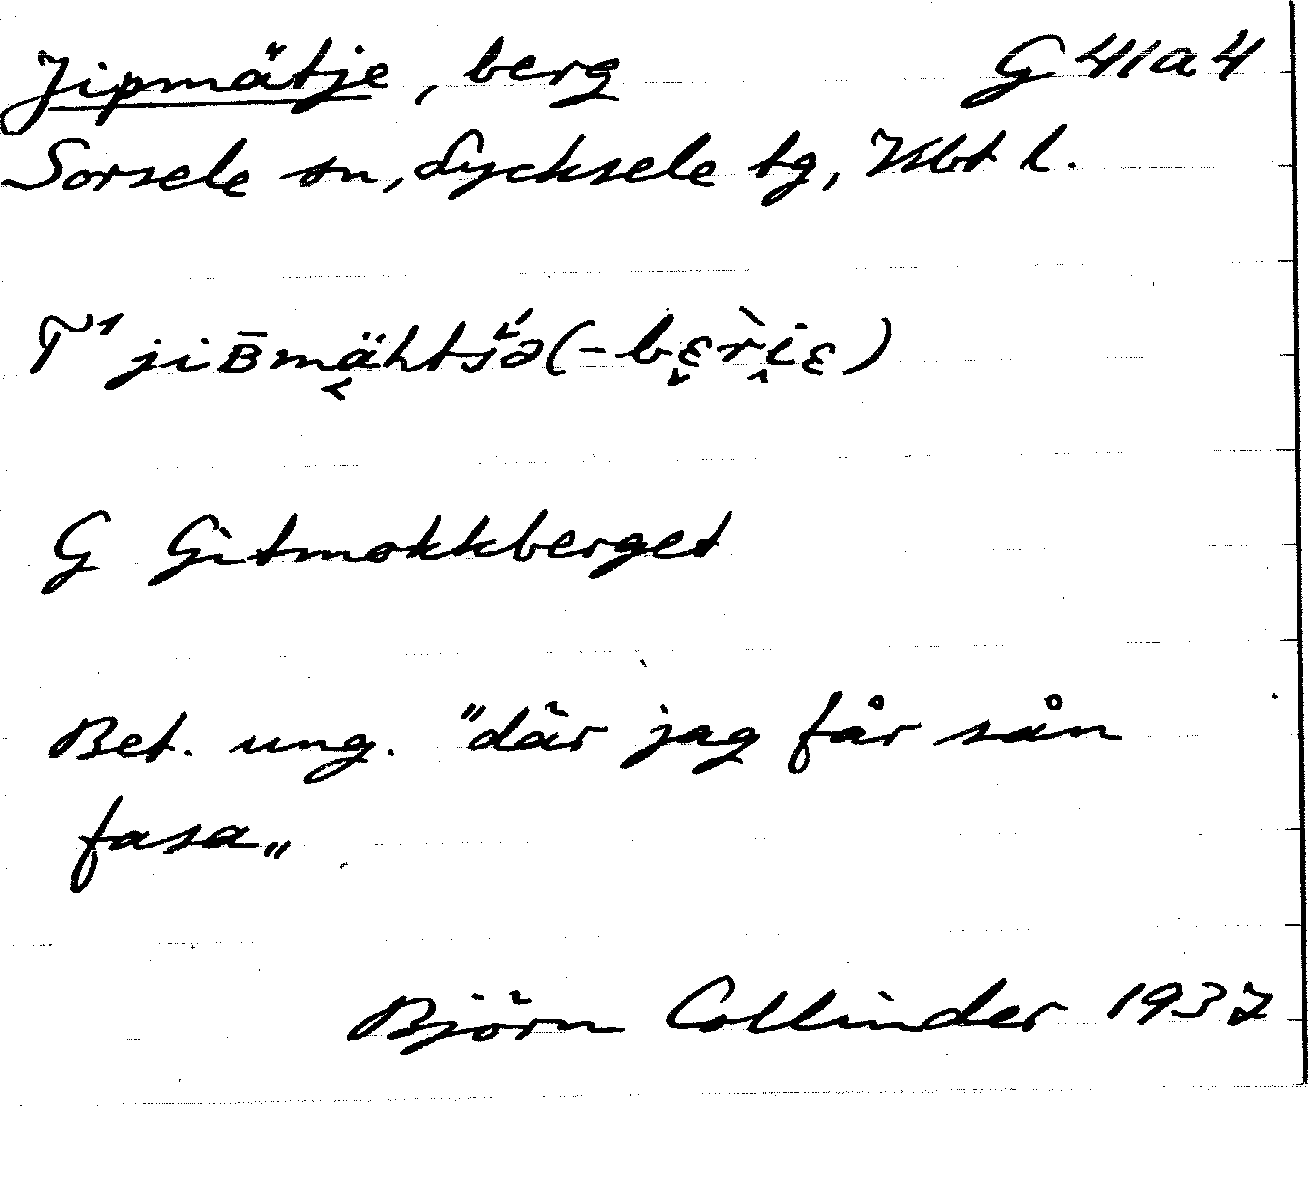 Jipmätje, berg G 41a4
Sorsele sn, Lycksele tg, Vlbt l.
T¹ jiʙ̄mä͔htśə(-bɛ̬r̀iɛ)
G Gitmokkberget
Bet. ung. "där jag får sån
fasa"
Björn Collinder 1937